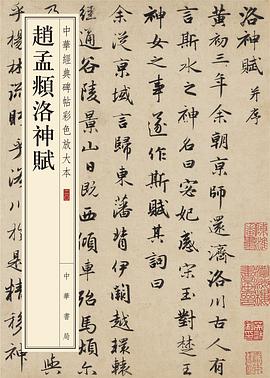 洛神賦 并序
黃初三年余朝京師還濟洛川古人有
言斯水之神名曰宓妃感宋玉對楚王
神女之事遂作斯賦其詞曰
余從京域言歸東藩背伊闕越轘轅
經通谷陵景山日既西傾車殆馬煩尔
與
乎楊林流眄乎洛川於是精移神
中華經典碑帖彩色放大本
趙孟頫洛神賦
中華書局